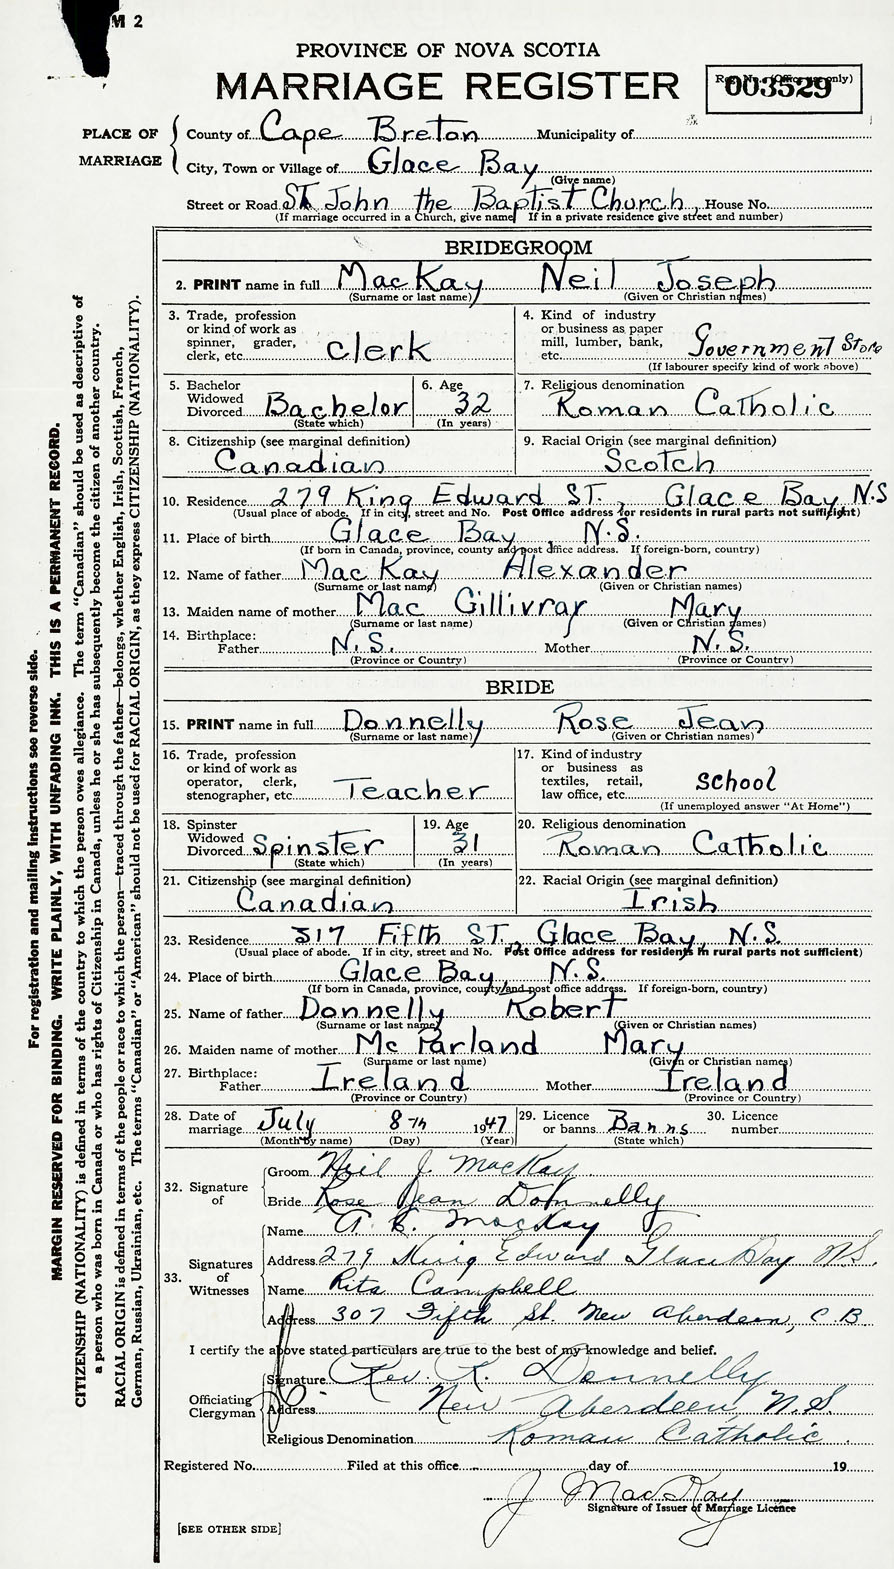 M 2
PROVINCE OF NOVA SCOTIA
MARRIAGE REGISTER
Reg. No. (Office use only)
003529
PLACE OF MARRIAGE
County of Cape Breton Municipality of
City, Town or Village of Glace Bay
(Give name)
Street or Road St. John the Baptist Church, House No.
(If marriage occurred in a Church, give name If in a private residence give street and number)
BRIDEGROOM
2. PRINT name in full MacKay Neil Joseph
(Surname or last name) (Given or Christian names)
3. Trade, profession or kind of work as spinner, grader, clerk, etc. clerk
4. Kind of industry or business as paper mill, lumber, bank, etc. Government Store
(If labourer specify kind of work above)
5. Bachelor Widowed Divorced Bachelor
(State which)
6. Age 32
(In years)
7. Religious denomination Roman Catholic
8. Citizenship (see marginal definition) Canadian
9. Racial Origin (see marginal definition) Scotch
10. Residence 279 King Edward ST. Glace Bay N.S
(Usual place of abode. If in city, street and No. Post Office address for residents in rural parts not sufficient)
11. Place of birth Glace Bay, N.S.
(If born in Canada, province, county and post office address. If foreign-born, country)
12. Name of father MacKay Alexander
(Surname or last name) (Given or Christian names)
13. Maiden name of mother Mac Gillivray Mary
(Surname or last name) (Given or Christian names)
14. Birthplace: Father N.S. Mother N.S.
(Province or Country) (Province or Country)
BRIDE
15. PRINT name in full Donnelly Rose Jean
(Surname or last name) (Given or Christian names)
16. Trade, profession or kind of work as operator, clerk, stenographer, etc. Teacher
17. Kind of industry or business as textiles, retail, law office, etc. school
(If unemployed answer "At Home")
18. Spinster Widowed Divorced Spinster
(State which)
19. Age 31
(In years)
20. Religious denomination Roman Catholic
21. Citizenship (see marginal definition) Canadian
22. Racial Origin (see marginal definition) Irish
23. Residence 317 Fifth ST. Glace Bay, N.S.
(Usual place of abode. If in city, street and No. Post Office address for residents in rural parts not sufficient)
24. Place of birth Glace Bay N.S.
(If born in Canada, province, county/and post office address. If foreign-born, country)
25. Name of father Donnelly Robert
(Surname or last name) (Given or Christian names)
26. Maiden name of mother Mc Parland Mary
(Surname or last name) (Given or Christian names)
27. Birthplace: Father Ireland Mother Ireland
(Province or Country) (Province or Country)
28. Date of marriage July 8th 1947
(Month by name) (Day) (Year)
29. Licence or banns Banns
(State which)
30. Licence number
32. Signature of
Groom Neil J. MacKay
Bride Rose Jean Donnelly
33. Signatures of Witnesses
Name A. E. MacKay
Address 279 King Edward Glace Bay N.S.
Name Rita Campbell
Address 307 Fifth St. New Aberdeen, C.B
I certify the above stated particulars are true to the best of my knowledge and belief.
Officiating Clergyman
Signature Rev. R. Donnelly
Address New Aberdeen, N.S.
Religious Denomination Roman Catholic.
Registered No. Filed at this office day of 19
J. MacKay
Signature of Issuer of Marriage Licence
[SEE OTHER SIDE]
For registration and mailing instructions see reverse side.
MARGIN RESERVED FOR BINDING. WRITE PLAINLY, WITH UNFADING INK. THIS IS A PERMANENT RECORD.
CITIZENSHIP (NATIONALITY) is defined in terms of the country to which the person owes allegiance. The term "Canadian" should be used as descriptive of
a person who was born in Canada or who has rights of Citizenship in Canada, unless he or she has subsequently become the citizen of another country.
RACIAL ORIGIN is defined in terms of the people or race to which the person—traced through the father—belongs, whether English, Irish, Scottish, French,
German, Russian, Ukrainian, etc. The terms "Canadian" or "American" should not be used for RACIAL ORIGIN, as they express CITIZENSHIP (NATIONALITY).